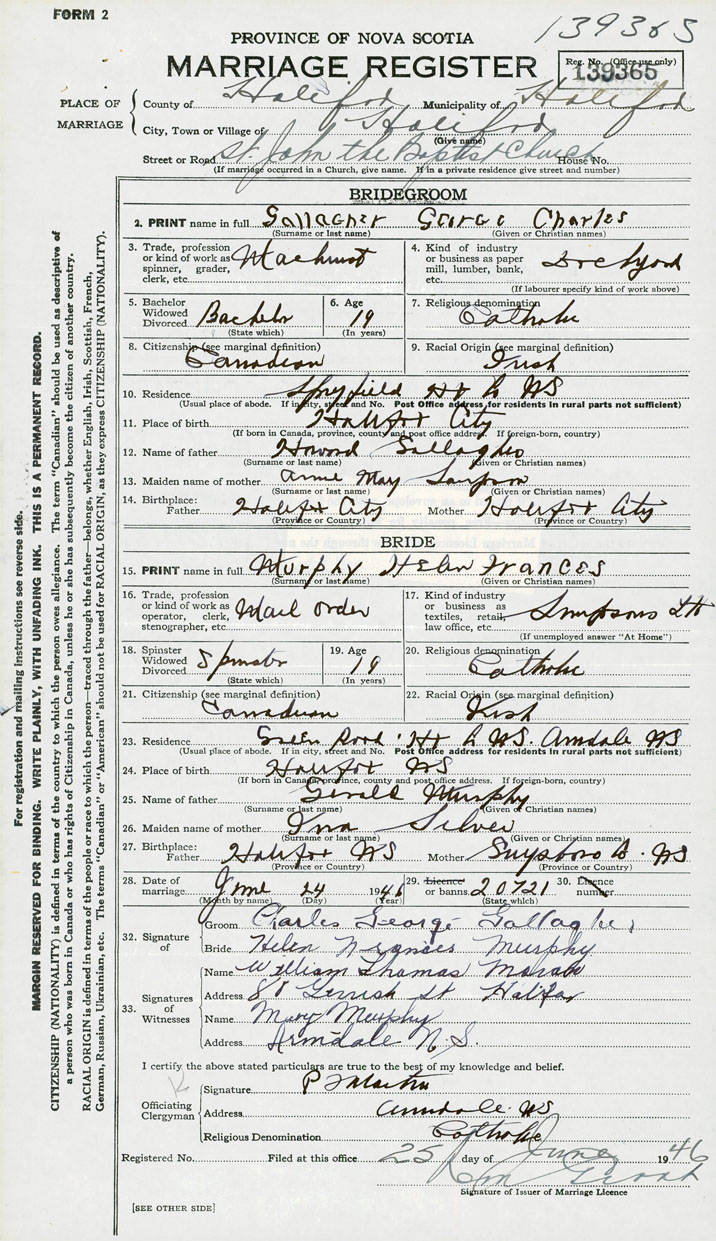 FORM 2
139365
PROVINCE OF NOVA SCOTIA
MARRIAGE REGISTER
Reg. No. (Office use only)
139365
PLACE OF MARRIAGE
County of Halifax Municipality of Halifax
City, Town or Village of Halifax
(Give name)
Street or Road St. John the Baptist Church House No.
(If marriage occurred in a Church, give name. If in a private residence give street and number)
BRIDEGROOM
2. PRINT name in full Gallagher George Charles
(Surname or last name) (Given or Christian names)
3. Trade, profession or kind of work as spinner, grader, clerk, etc. Machinist
4. Kind of industry or business as paper mill, lumber, bank, etc. Dockyard
(If labourer specify kind of work above)
5. Bachelor Widowed Divorced Bachelor
(State which)
6. Age 19
(In years)
7. Religious denomination Catholic
8. Citizenship (see marginal definition) Canadian
9. Racial Origin (see marginal definition) Irish
10. Residence Spryfield Hx Co NS
(Usual place of abode. If in city, street and No. Post Office address for residents in rural parts not sufficient)
11. Place of birth Halifax City
(If born in Canada, province, county and post office address. If foreign-born, country)
12. Name of father Howard Gallagher
(Surname or last name) (Given or Christian names)
13. Maiden name of mother Annie May
(Surname or last name) (Given or Christian names)
14. Birthplace: Father Halifax City Mother Halifax City
(Province or Country) (Province or Country)
BRIDE
15. PRINT name in full Murphy Helen Frances
(Surname or last name) (Given or Christian names)
16. Trade, profession or kind of work as operator, clerk, stenographer, etc. Mail order
17. Kind of industry or business as textiles, retail, law office, etc. Simpsons Ltd
(If unemployed answer "At Home")
18. Spinster Widowed Divorced Spinster
(State which)
19. Age 19
(In years)
20. Religious denomination Catholic
21. Citizenship (see marginal definition) Canadian
22. Racial Origin (see marginal definition) Irish
23. Residence Green Road Hx Co NS. Armdale NS
(Usual place of abode. If in city, street and No. Post Office address for residents in rural parts not sufficient)
24. Place of birth Halifax NS
(If born in Canada, province, county and post office address. If foreign-born, country)
25. Name of father Gerald Murphy
(Surname or last name) (Given or Christian names)
26. Maiden name of mother Ina Silver
(Surname or last name) (Given or Christian names)
27. Birthplace: Father Halifax NS Mother Guysboro Co. NS
(Province or Country) (Province or Country)
28. Date of marriage June 24 1946
(Month by name) (Day) (Year)
29. Licence or banns. 20721
(State which)
30. Licence number
32. Signature of
Groom Charles George Gallagher
Bride Helen Frances Murphy
33. Signatures of Witnesses
Name William Thomas
Address Gerrish St Halifax
Name Mary Murphy
Address Armdale N.S.
I certify the above stated particulars are true to the best of my knowledge and belief.
Officiating Clergyman
Signature P Martin
Address Armdale NS
Religious Denomination Catholic
Registered No. Filed at this office 25 day of June 1946
Signature of Issuer of Marriage Licence
[SEE OTHER SIDE]
For registration and mailing instructions see reverse side.
MARGIN RESERVED FOR BINDING. WRITE PLAINLY, WITH UNFADING INK. THIS IS A PERMANENT RECORD.
CITIZENSHIP (NATIONALITY) is defined in terms of the country to which the person owes allegiance. The term "Canadian" should be used as descriptive of
a person who was born in Canada or who has rights of Citizenship in Canada, unless he or she has subsequently become the citizen of another country.
RACIAL ORIGIN is defined in terms of the people or race to which the person—traced through the father—belongs, whether English, Irish, Scottish, French,
German, Russian, Ukrainian, etc. The terms "Canadian" or "American" should not be used for RACIAL ORIGIN, as they express CITIZENSHIP (NATIONALITY).